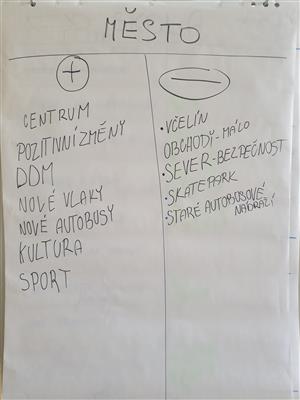 MĚSTO
+
CENTRUM
POZITIVNÍ ZMĚNY
DDM
NOVÉ VLAKY
NOVÉ AUTOBUSY
KULTURA
SPORT
—
• VČELÍN
OBCHODY - MÁLO
• SEVER - BEZPEČNOST
• SKATEPARK
• STARÉ AUTOBUSOVÉ
NÁDRAŽÍ